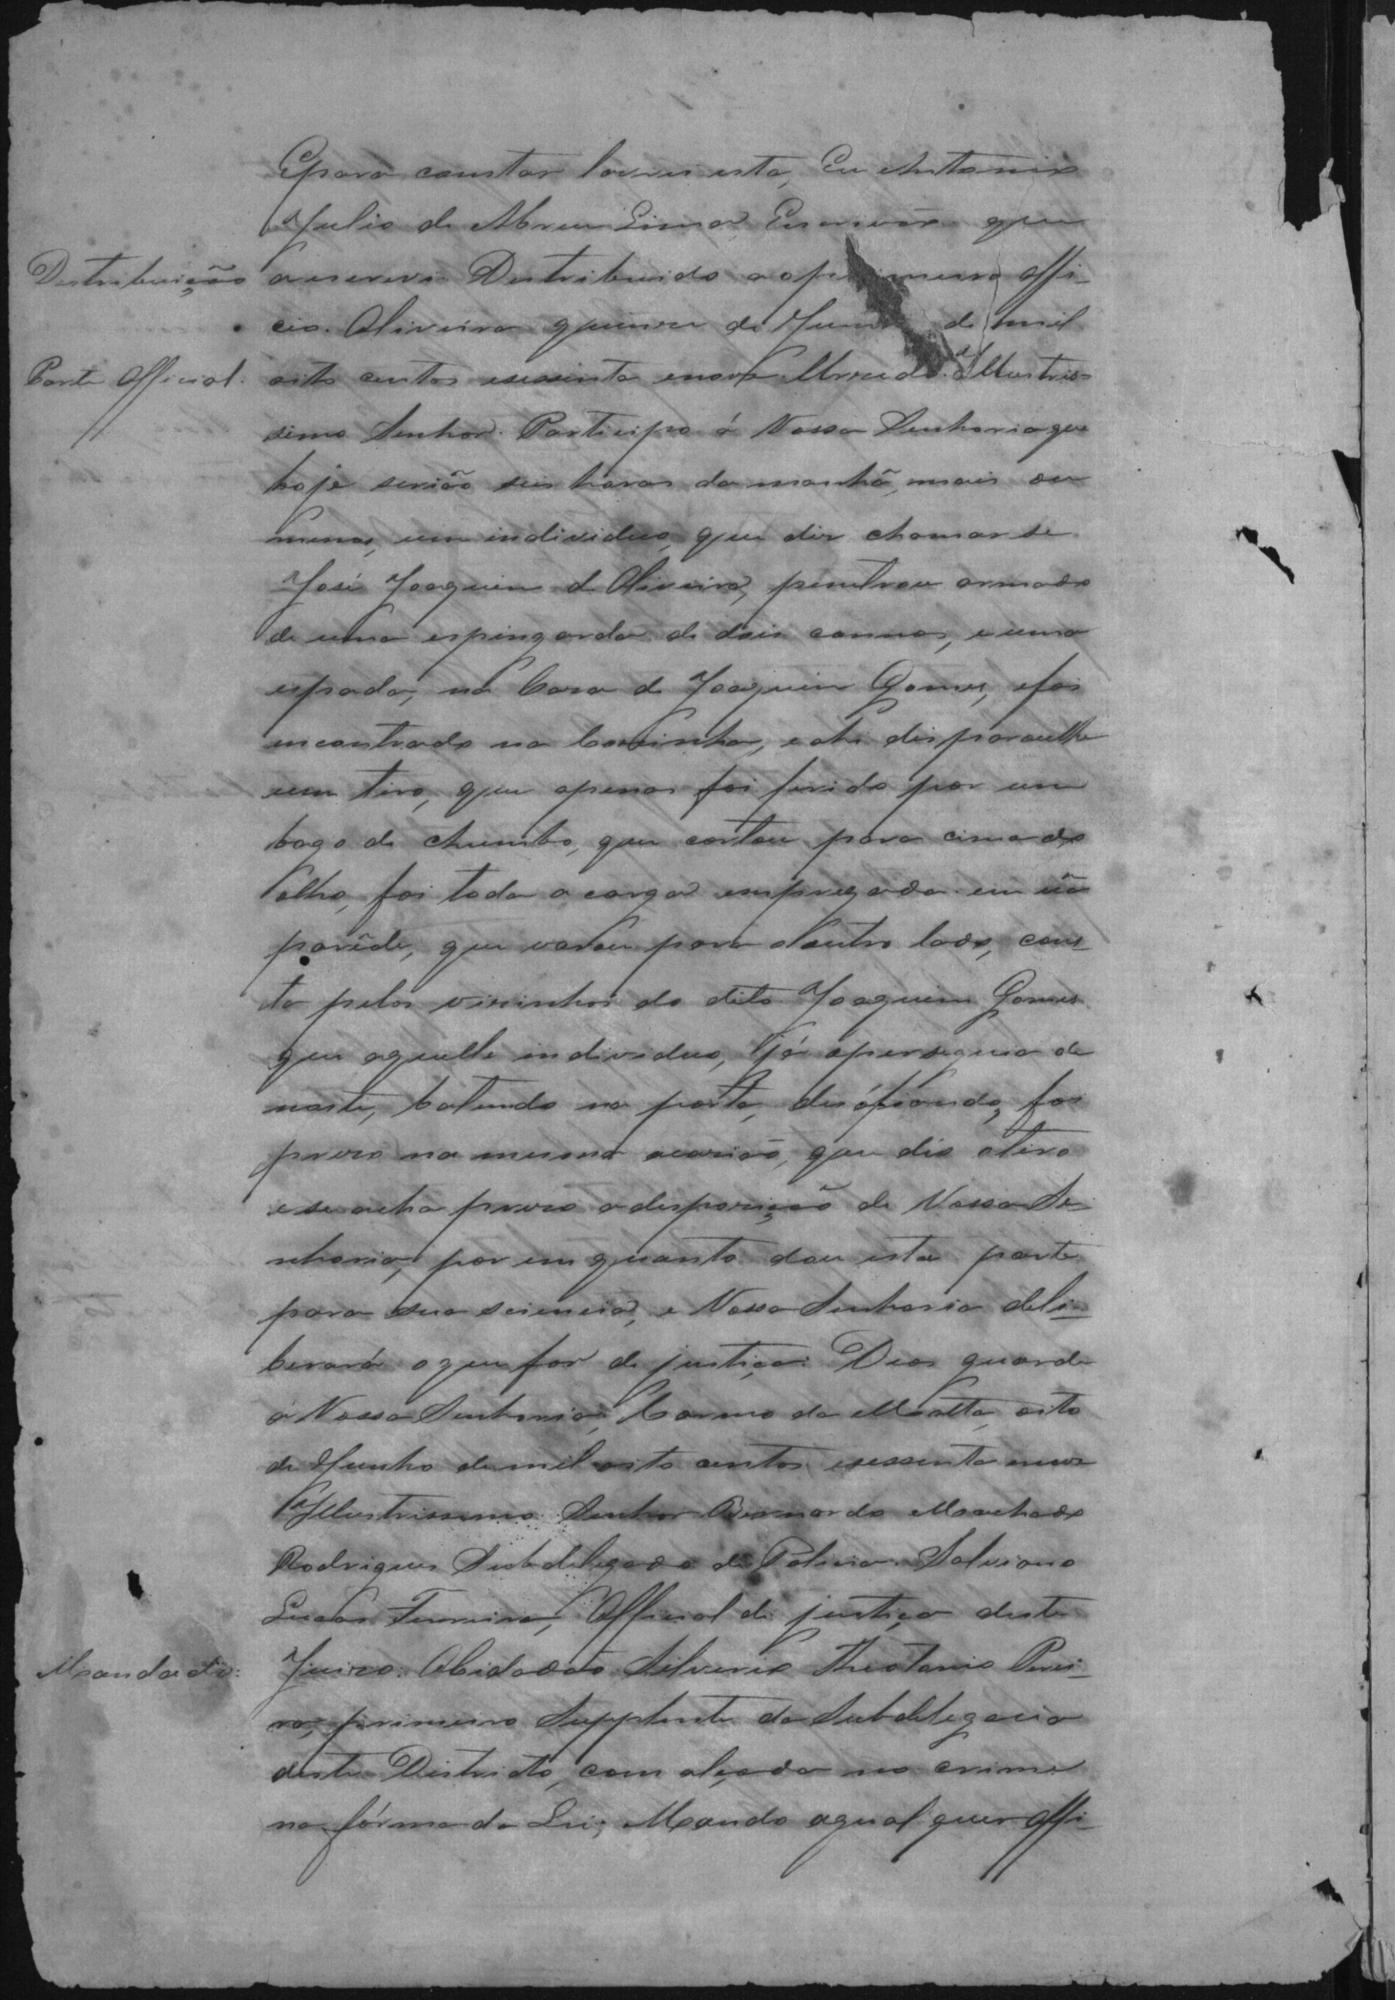 E para constar lavrei esta, Eu Antonio
Julio de Abreu Lima, Escrivão que
Distribuição
a escrevi. Destribuido ao primeiro offi-
cio. Oliveira quinze de Junho de mil
Parte Official.
oito centos esessenta enove. Illustris-
simo Senhor. Participo á Vossa Senhoria que
hoje serião seis horas da manhã, mais ou
menos, um individuo, que diz chamar se
José Joaquim de Oliveira, penetrou armado
de uma espingarda de dois cannos, e uma
espada, na Casa de Joaquim Gomes, e foi
encontrado na Cosinha, e ahi disparoulhe
um tiro, que apenas foi ferido por um
bago de chumbo, que cortou para cima do
olho, foi toda a carga empregada em uã
parêde, que varou para o outro lado, cons-
ta pelos visinhos do dito Joaquim Gomes
que aquelle individuo, já o perseguia de
noite, batendo na porta, desáfiando, foi
prezo na mesma ocasião, que dio o tiro
e se acha prezo a desposição de Vossa Se-
nhoria, por em quanto dou esta parte
para sua sciencia, e Vossa Senhoria deli-
berará o que for de justiça. Deos guarde
a Vossa Senhoria, Carmo da Matta, oito
de Junho de mil oito centos esessenta enove
Illustrissimo Senhor Bernardo Machado
Rodrigues Subdelegado de Policia. Salviano
Lucas Ferreira, Official de justiça deste
Mandado:
Juizo. O Cidadão Silverio Theotonio Perei-
ra, primeiro Supplente da Subdelegacia
deste Districto, com alçada no crime
na fórma da Lei, Mando aqual quer Offi-